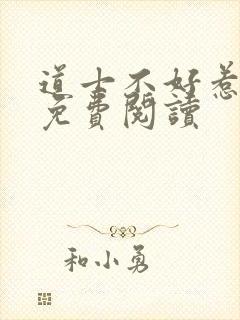 道士不好惹
免費閱讀
和小勇